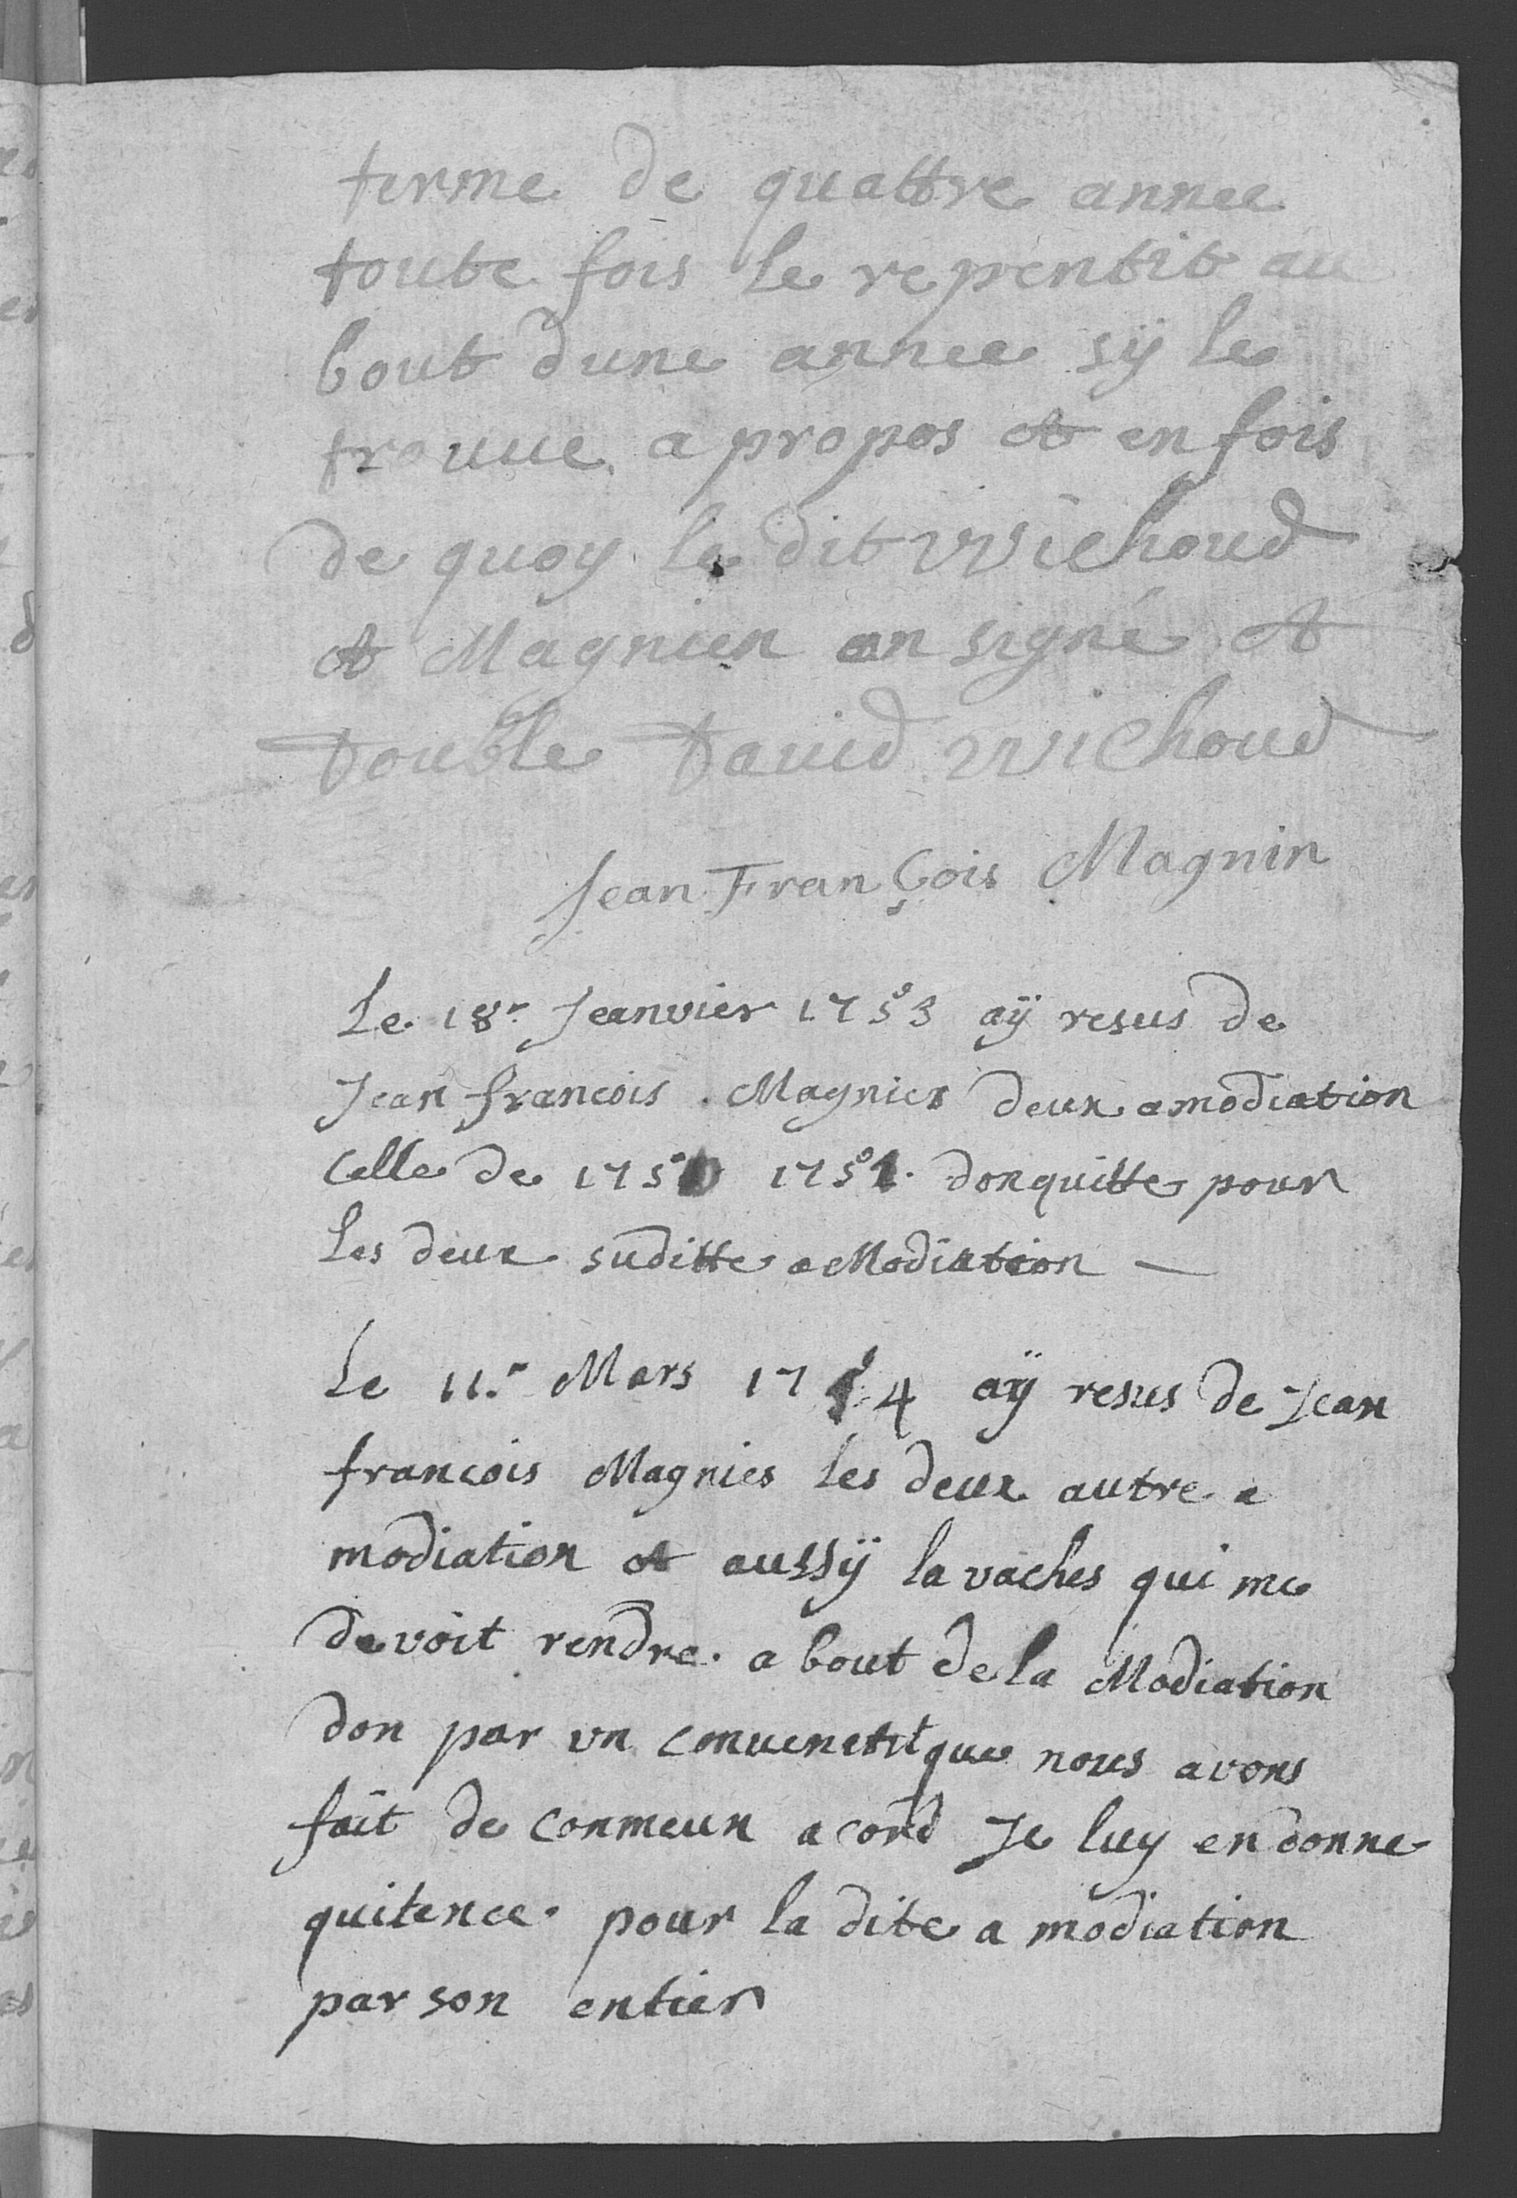 terme de quattre annee
toute fois le repentit au
bout dune annee sÿ le
trouue a propos et en fois
de quoy le dit Wichoud
et Magnien an signé et
Double David Wichoud
Jean François Magnin
Le 18r Jeanvier 1753 aÿ resus de
Jean francois . Magnies deux amodiation
Celle de 175 1751. donquitte pour
Les deux suditte a Modiation —
Le 11r Mars 1754 aÿ resus de Jean
francois Magnies les deux autre a
modiation et aussÿ la vaches qui me
devoit rendre. a bout de la Modiation
don par un que nous avons
fait de conmeun acord Je luy en donne
quitence. pour la dite a modiation
par son entier